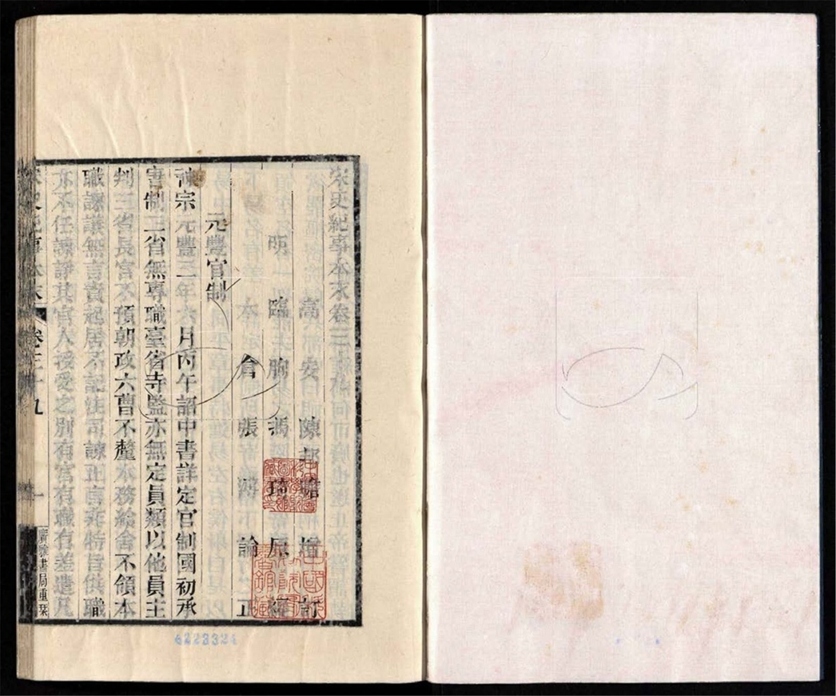 宋史紀事本末卷三十
明
高安陳邦瞻增訂
臨朐馮琦原編
太倉張溥論正
元豐官制
神宗元豐三年六月丙午詔中書詳定官制國初承
唐制三省無專職臺省寺監亦無定員類以他員主
判三省長官不預朝政六曹不釐本務給舍不領本
職諫議無言責起居不記注司諫正言非特旨供職
亦不任諫諍其官人授受之別有官有職有差遣凡
宋史紀事本末
卷三十九
一
廣雅書局重栞
6223324